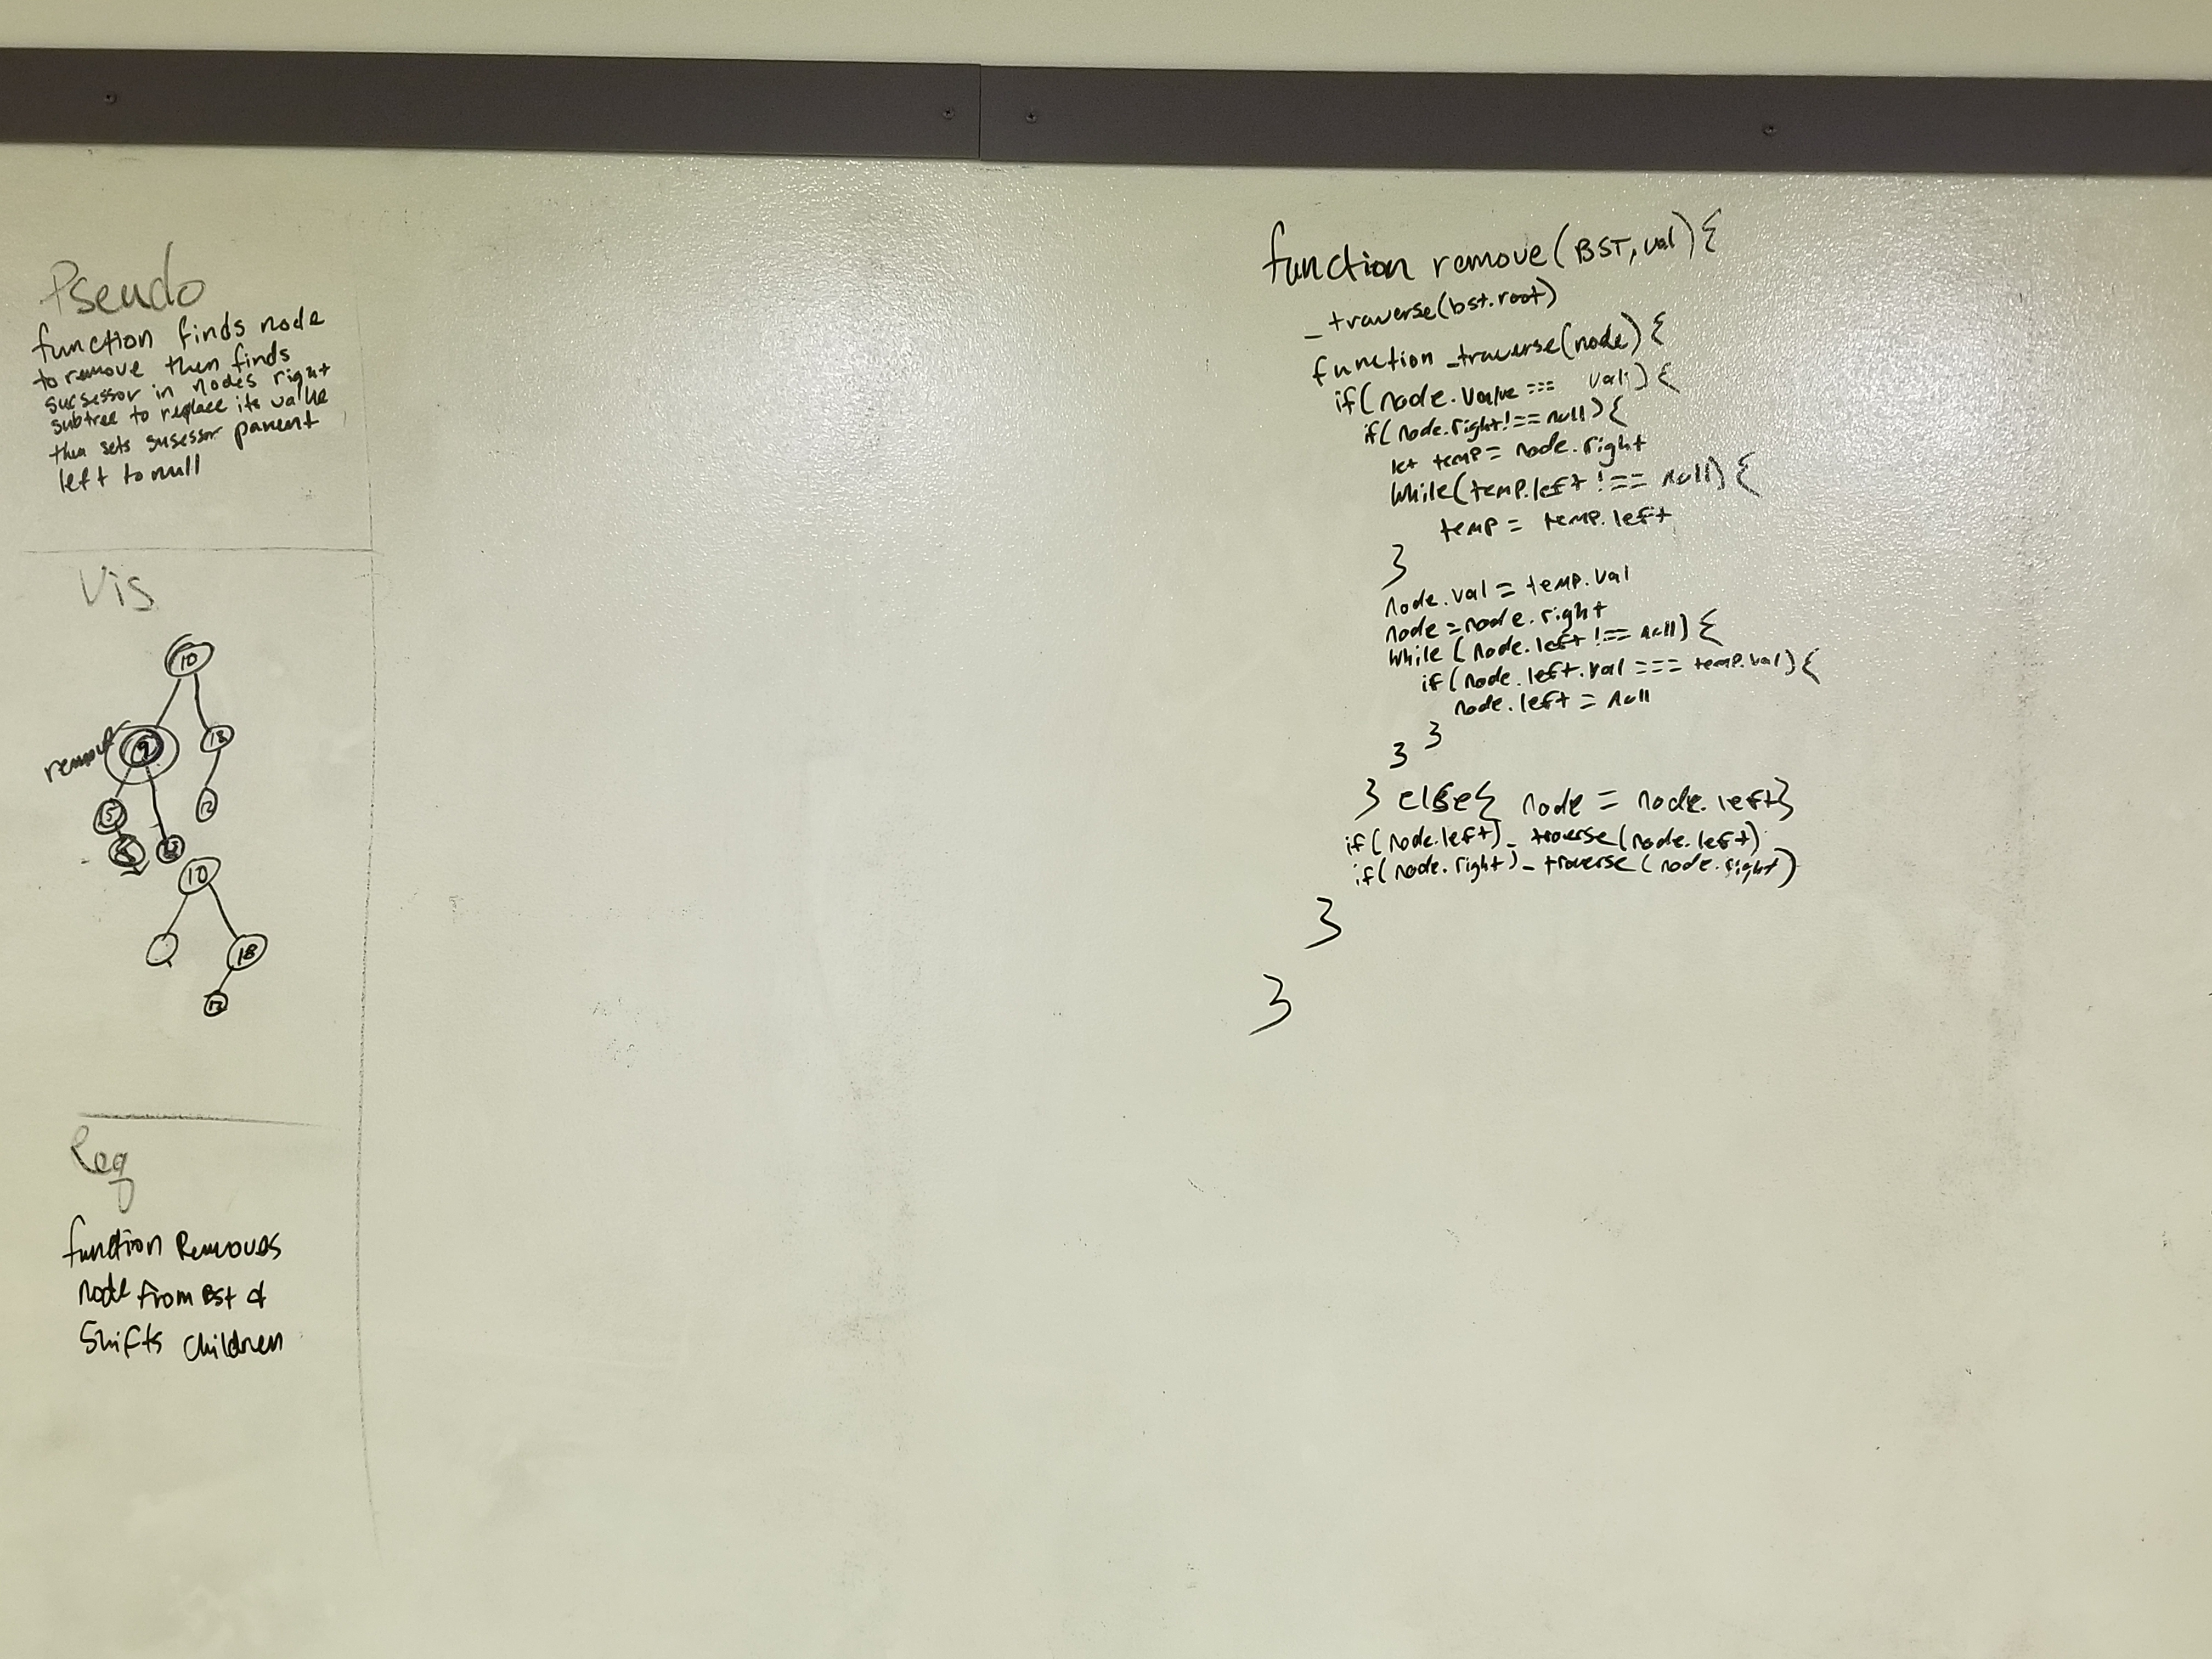 Pseudo
function finds node
to remove then finds
sucsessor in nodes right
subtree to replace its value
then sets susessor parent
left to null
Vis
10
remove
9
18
5
12
10
18
12
Req
function Removes
node from Bst &
Shifts children
function remove(BST, val){
_traverse(bst.root)
function _traverse(node){
if(node.value === val){
if(node.right !== null){
let temp = node.right
while(temp.left !== null){
temp = temp.left
}
node.val = temp.val
node = node.right
while (node.left !== null){
if(node.left.val === temp.val){
node.left = null
}
}
} else{ node = node.left}
if(node.left)_traverse(node.left)
if(node.right)_traverse(node.right)
}
}